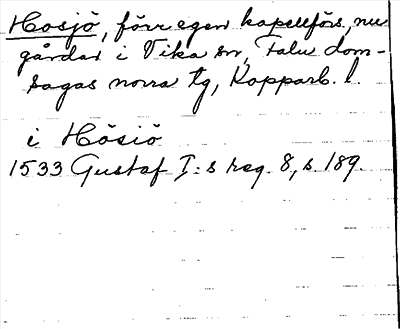 Hosjö, förr egen kapellförs., nu
gårdar i Vika sn, Falu dom-
sagas norra tg, Kopparb. l.
i Hösiö
1533 Gustaf I:s reg. 8, s. 189.